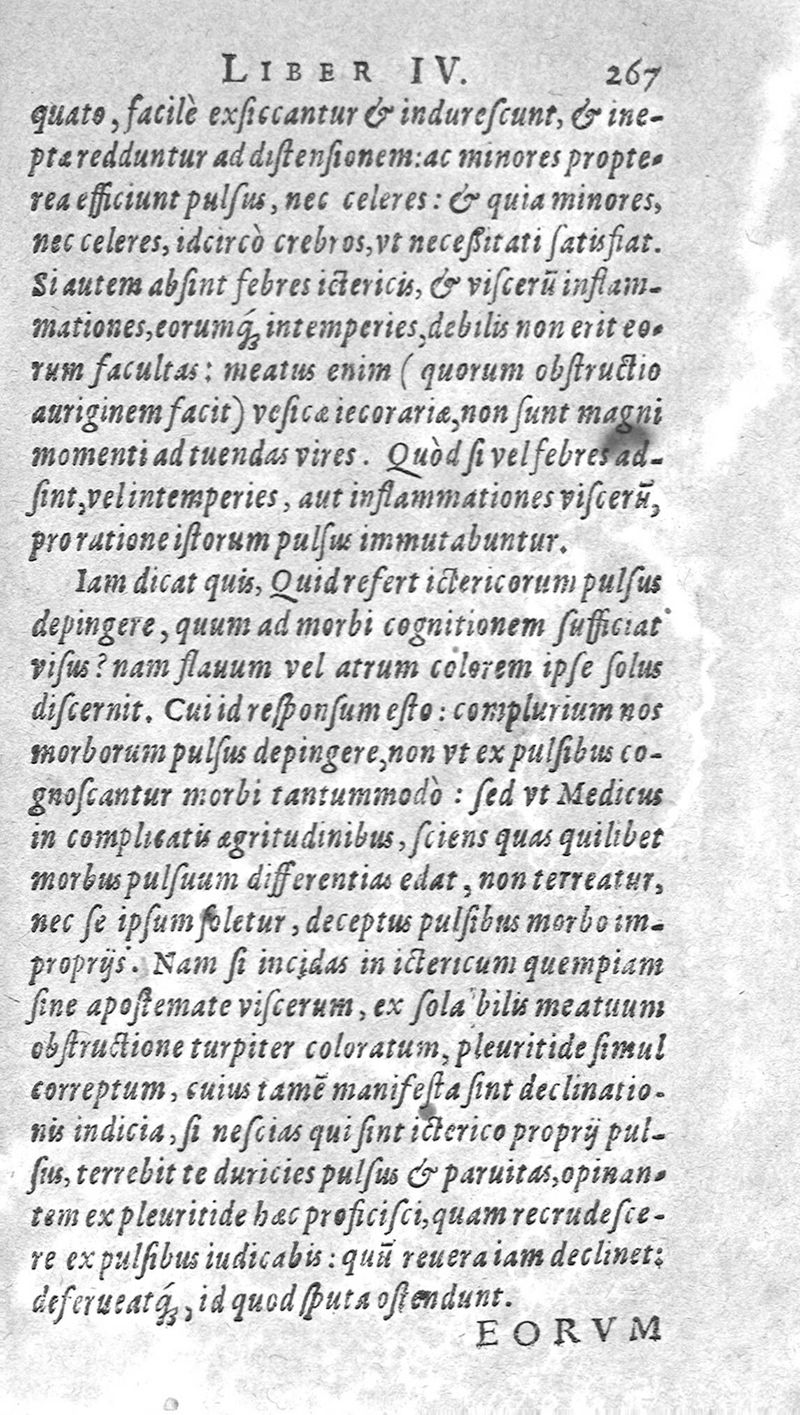 LIBER IV. 267
quato, facilè exſiccantur & indureſcunt, & ine-
ptæ redduntur ad diſtenſionem: ac minores propte-
rea efficiunt pulſus, nec celeres: & quia minores,
nec celeres, idcircò crebros, vt neceßitati ſatisfiat.
Si autem abſint febres ictericis, & viſcerū inflam-
mationes, eorumq́; intemperies, debilis non erit eo-
rum facultas: meatus enim (quorum obſtructio
auriginem facit) veſicæ iecorariæ, non ſunt magni
momenti ad tuendas vires. Quòd ſi vel febres ad-
ſint, vel intemperies, aut inflammationes viſcerū,
pro ratione iſtorum pulſus immutabuntur.
Iam dicat quis, Quid refert ictericorum pulſus
depingere, quum ad morbi cognitionem ſufficiat
viſus? nam flauum vel atrum colorem ipſe ſolus
diſcernit. Cui id reſponſum eſto: complurium nos
morborum pulſus depingere, non vt ex pulſibus co-
gnoſcantur morbi tantummodò: ſed vt Medicus
in complicatis ægritudinibus, ſciens quas quilibet
morbus pulſuum differentias edat, non terreatur,
nec ſe ipſum ſoletur, deceptus pulſibus morbo im-
proprijs. Nam ſi incidas in ictericum quempiam
ſine apoſtemate viſcerum, ex ſola bilis meatuum
obſtructione turpiter coloratum, pleuritide ſimul
correptum, cuius tamē manifeſta ſint declinatio-
nis indicia, ſi neſcias qui ſint icterico proprij pul-
ſus, terrebit te duricies pulſus & paruitas, opinan-
tem ex pleuritide hæc proficiſci, quam recrudeſce-
re ex pulſibus iudicabis: quū reuera iam declinet;
deferueatq́;, id quod ſputa oſtendunt.
EORVM